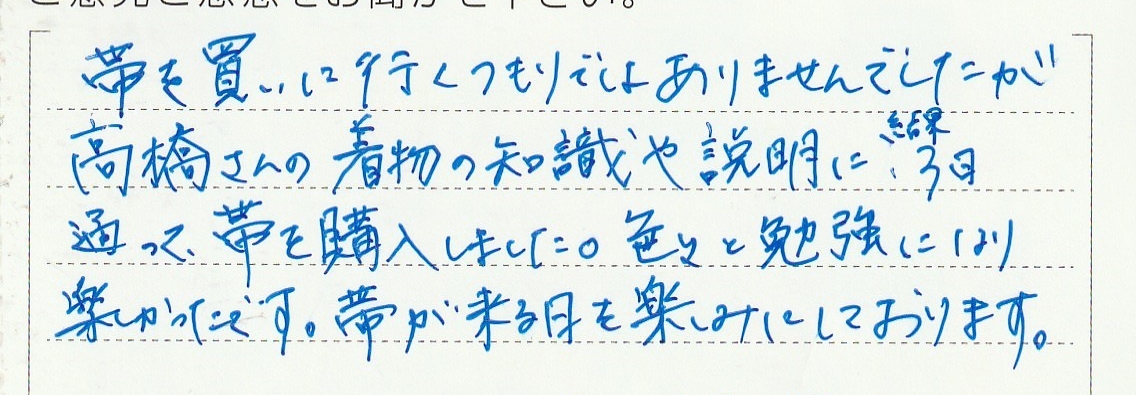 ご意見ご感想をお聞かせ下さい。
帯を買いに行くつもりではありませんでしたが
高橋さんの着物の知識や説明に、結果3日
通って、帯を購入しました。色々と勉強になり
楽しかったです。帯が来る日を楽しみにしております。